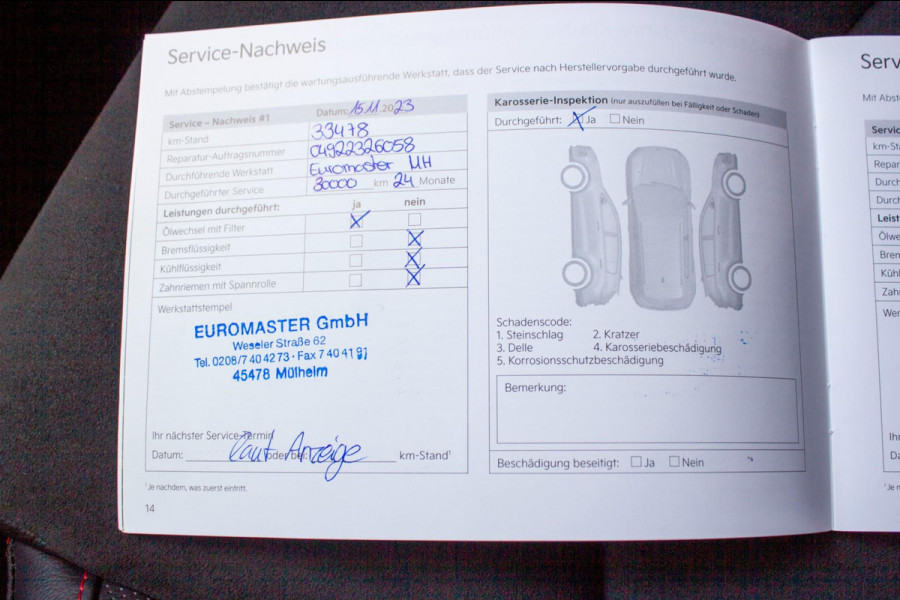 Service-Nachweis
Mit Abstempelung bestätigt die wartungsausführende Werkstatt, dass der Service nach Herstellervorgabe durchgeführt wurde.
Service – Nachweis #1 Datum: 15.11.2023
km-Stand 33478
Reparatur-Auftragsnummer 04922326058
Durchführende Werkstatt Euromaster MH
Durchgeführter Service 30000 km 24 Monate
Leistungen durchgeführt: ja nein
Ölwechsel mit Filter
Bremsflüssigkeit
Kühlflüssigkeit
Zahnriemen mit Spannrolle
Werkstattstempel
EUROMASTER GmbH
Weseler Straße 62
Tel. 0208/7 40 42 73 · Fax 7 40 41 91
45478 Mülheim
Ihr nächster Service-Termin
Datum: laut Anzeige oder bei: km-Stand¹
¹Je nachdem, was zuerst eintritt.
14
Karosserie-Inspektion (nur auszufüllen bei Fälligkeit oder Schaden)
Durchgeführt: Ja Nein
Schadenscode:
1. Steinschlag 2. Kratzer
3. Delle 4. Karosseriebeschädigung
5. Korrosionsschutzbeschädigung
Bemerkung:
Beschädigung beseitigt: Ja Nein
Serv
Mit Abst
Servic
km-St
Repar
Durch
Durch
Leist
Ölwe
Brem
Kühl
Zah
Wer
Ih
Da